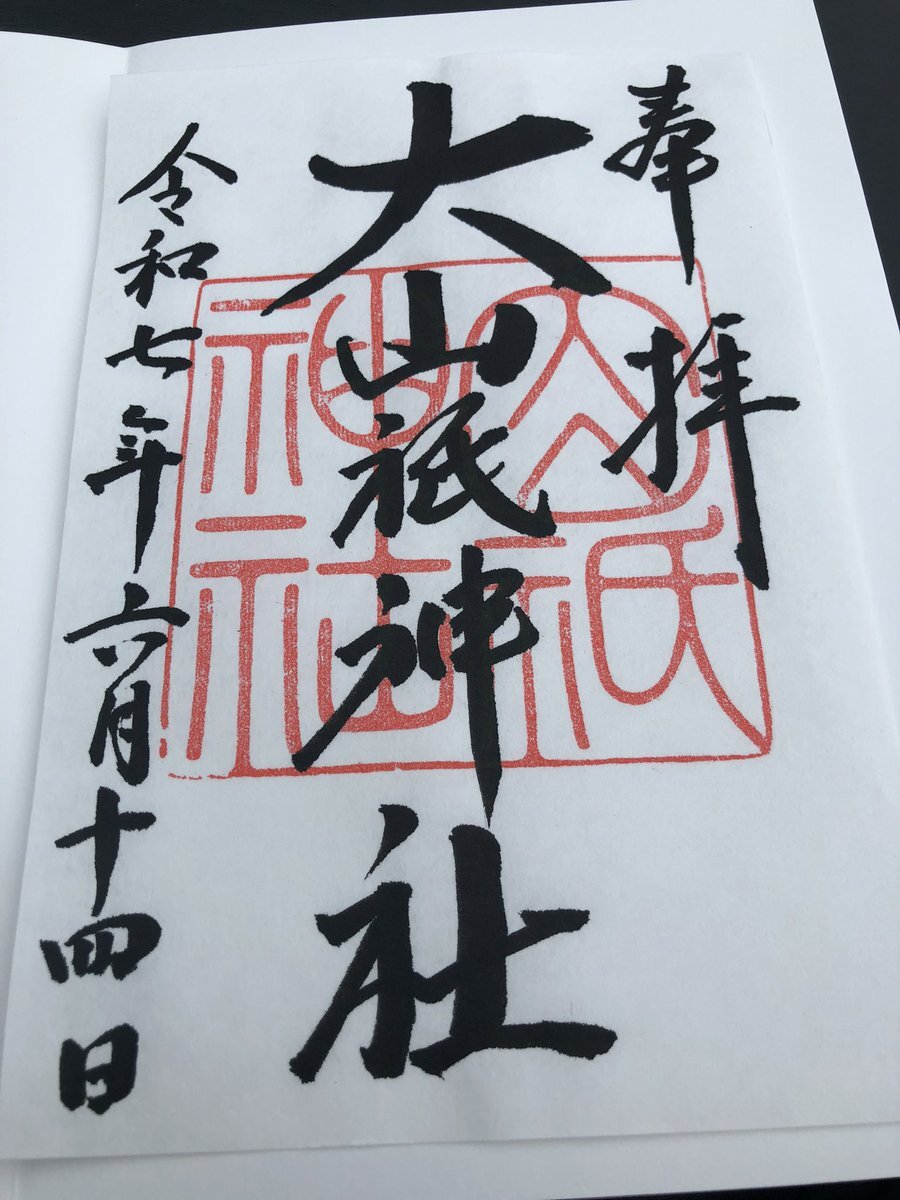 奉拝
大山祇神社
令和七年六月十四日
大山祇
神社